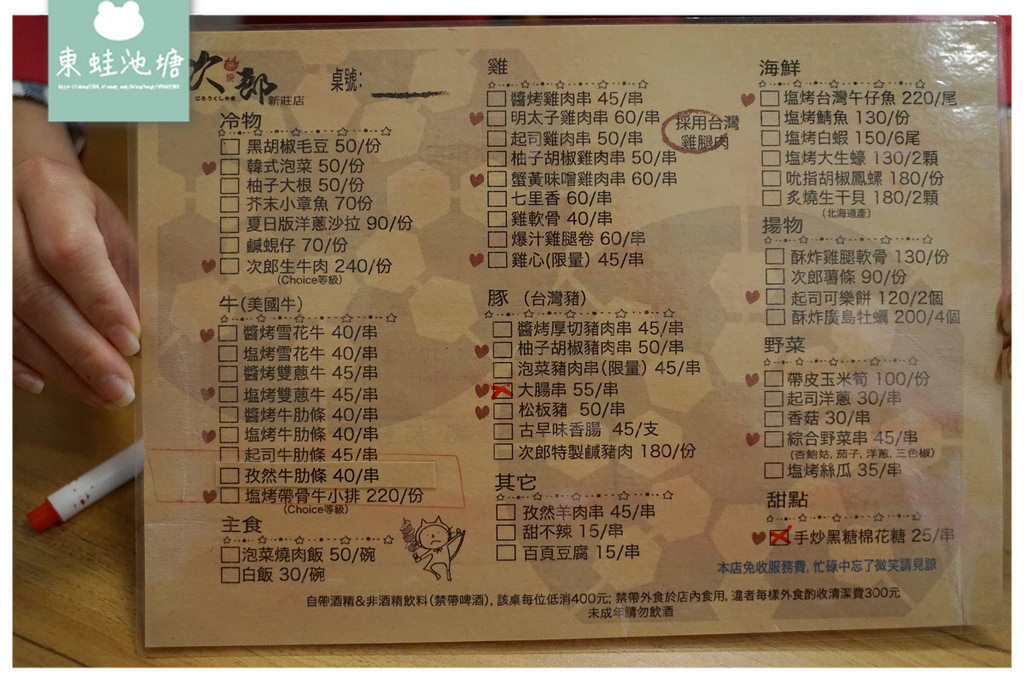 東蛙池塘
次郎
串燒
じろうくしやき
新莊店
桌號:
冷物
黑胡椒毛豆 50/份
韓式泡菜 50/份
柚子大根 50/份
芥末小章魚 70份
夏日版洋蔥沙拉 90/份
鹹蜆仔 70/份
次郎生牛肉 240/份
(Choice等級)
牛(美國牛)
醬烤雪花牛 40/串
塩烤雪花牛 40/串
醬烤雙蔥牛 45/串
塩烤雙蔥牛 45/串
醬烤牛肋條 40/串
塩烤牛肋條 40/串
起司牛肋條 45/串
孜然牛肋條 40/串
塩烤帶骨牛小排 220/份
(Choice等級)
主食
泡菜燒肉飯 50/碗
白飯 30/碗
雞
醬烤雞肉串 45/串
明太子雞肉串 60/串
起司雞肉串 50/串
柚子胡椒雞肉串 50/串
蟹黃味噌雞肉串 60/串
七里香 60/串
雞軟骨 40/串
爆汁雞腿卷 60/串
雞心(限量) 45/串
採用台灣
雞腿肉
豚 (台灣豬)
醬烤厚切豬肉串 45/串
柚子胡椒豬肉串 50/串
泡菜豬肉串(限量) 45/串
大腸串 55/串
松板豬 50/串
古早味香腸 45/支
次郎特製鹹豬肉 180/份
其它
孜然羊肉串 45/串
甜不辣 15/串
百頁豆腐 15/串
海鮮
塩烤台灣午仔魚 220/尾
塩烤鯖魚 130/份
塩烤白蝦 150/6尾
塩烤大生蠔 130/2顆
吮指胡椒鳳螺 180/份
炙燒生干貝 180/2顆
(北海道產)
揚物
酥炸雞腿軟骨 130/份
次郎薯條 90/份
起司可樂餅 120/2個
酥炸廣島牡蠣 200/4個
野菜
帶皮玉米筍 100/份
起司洋蔥 30/串
香菇 30/串
綜合野菜串 45/串
(杏鮑姑, 茄子, 洋蔥, 三色椒)
塩烤絲瓜 35/串
甜點
手炒黑糖棉花糖 25/串
本店免收服務費, 忙碌中忘了微笑請見諒
自帶酒精&非酒精飲料(禁帶啤酒), 該桌每位低消400元; 禁帶外食於店內食用, 違者每樣外食酌收清潔費300元
未成年請勿飲酒